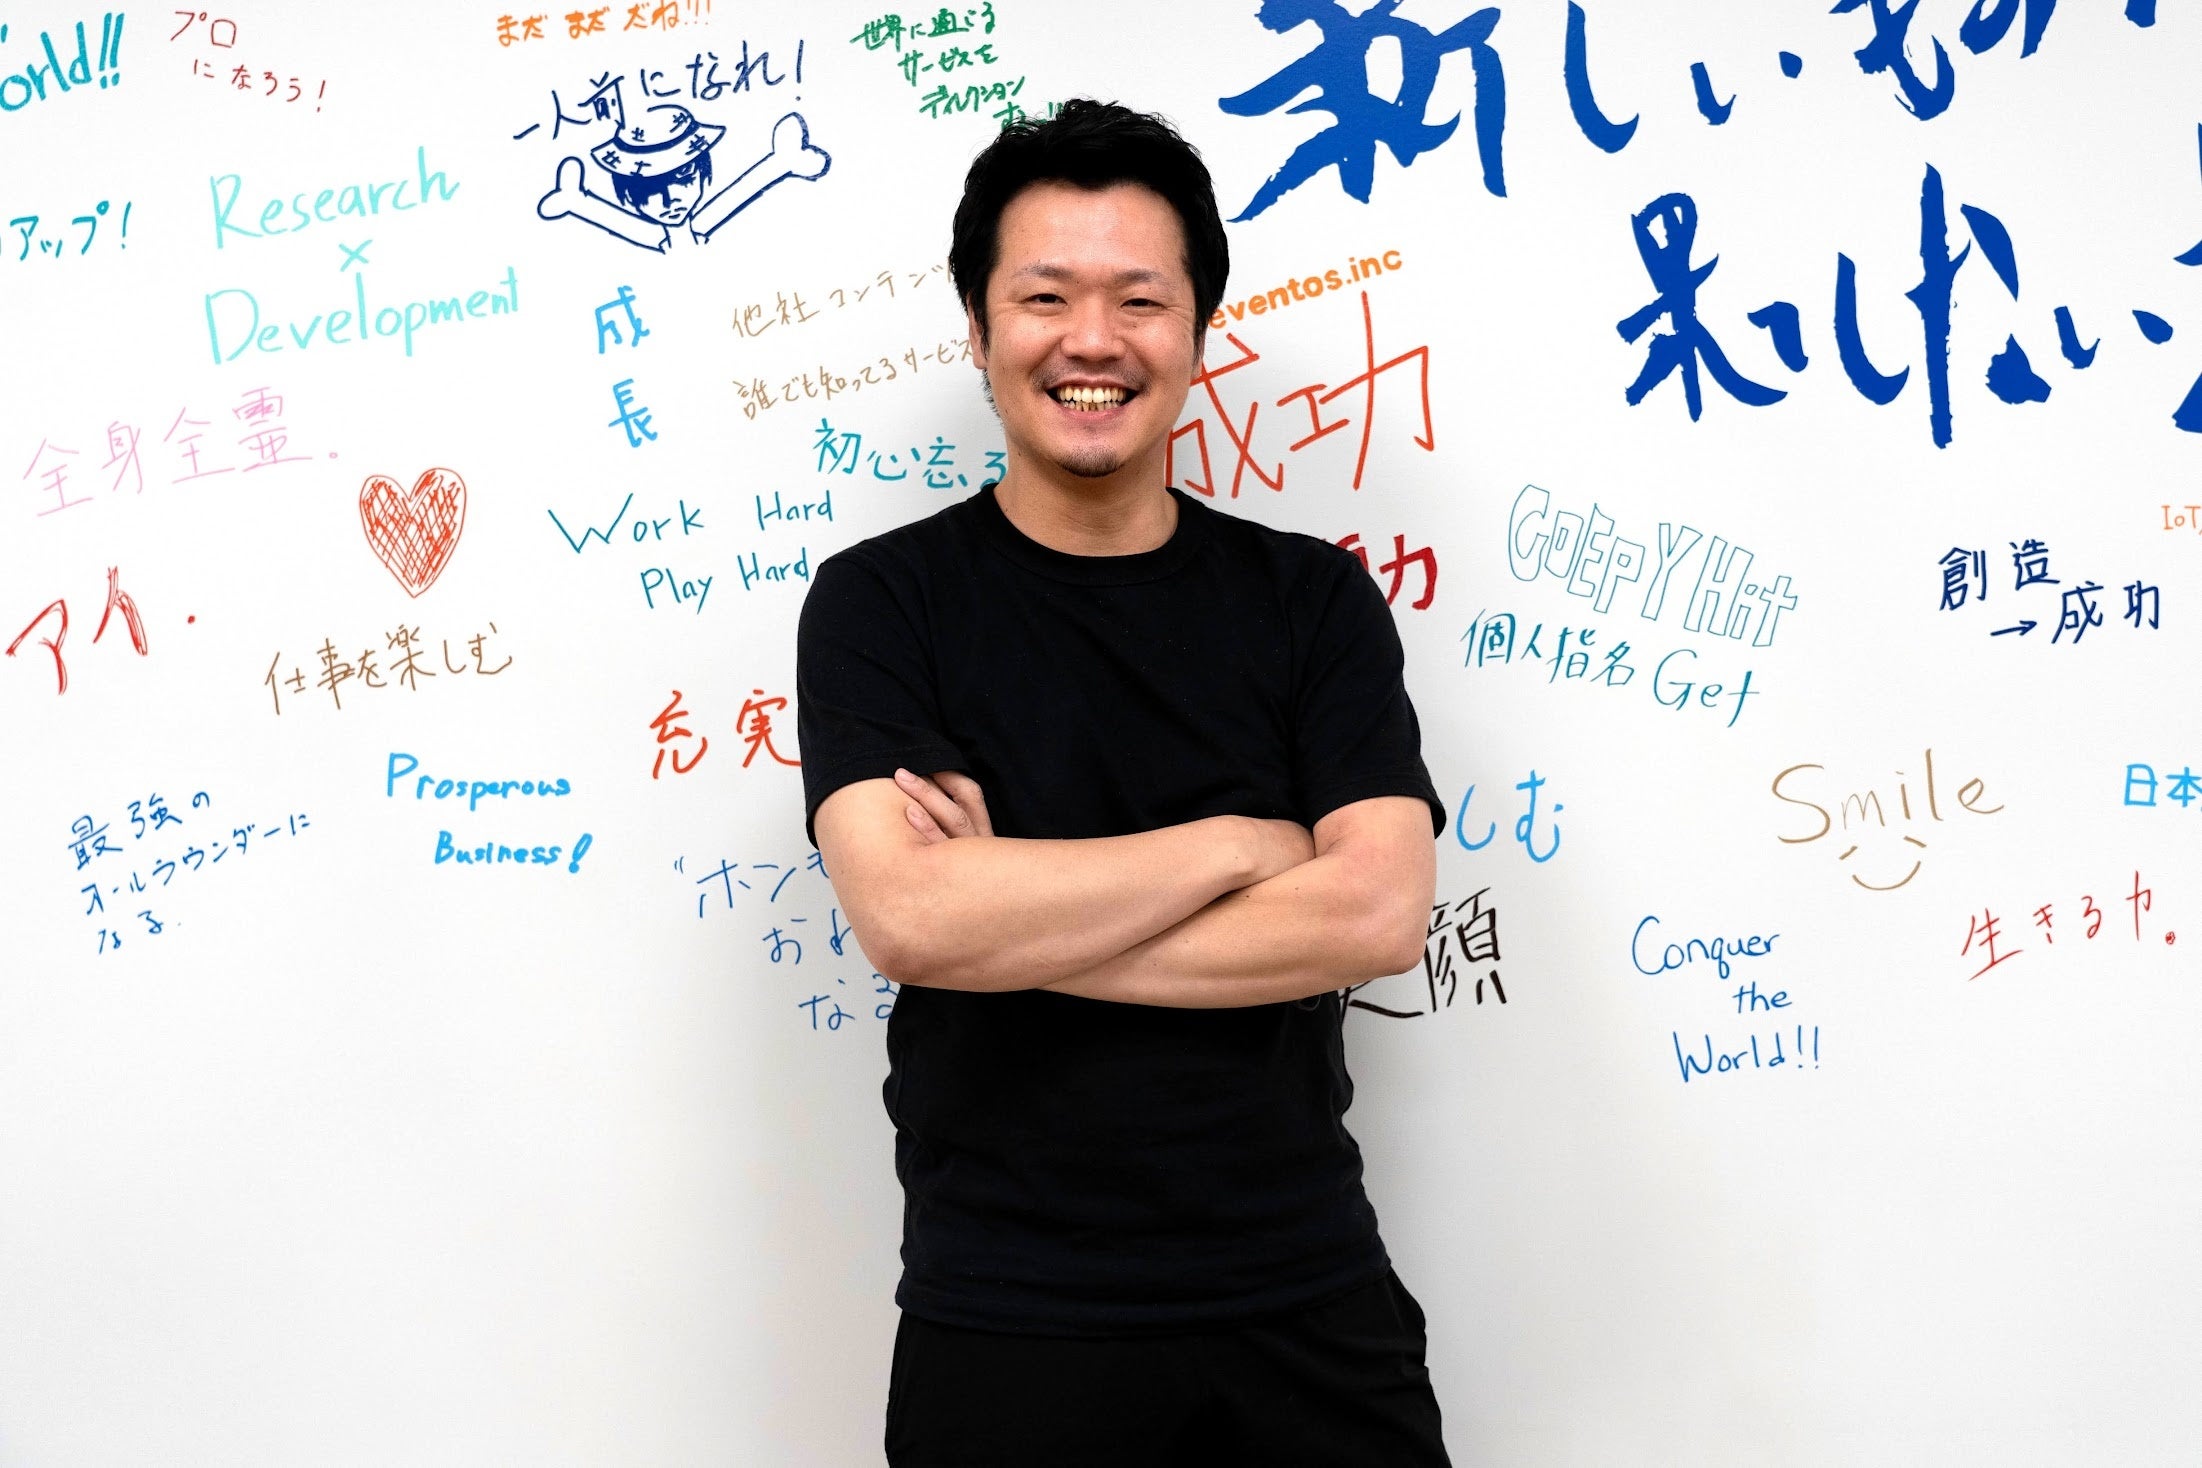 orld!!
プロ
になろう!
まだまだだね!!!
一人前になれ!
世界に通じる
サービスを
ディレクション
新しいもの
果てしない
アップ!
Research
×
Development
成
長
他社コンテンツ
誰でも知ってるサービス
eventos.inc
成功
全身全霊.
初心忘る
Work Hard
Play Hard
アイ.
仕事を楽しむ
GOEPYHit
個人指名Get
IoT
創造
→成功
充実
力
最強の
オールラウンダーに
なる.
Prosperous
Business!
"ホンモ
おれ
なる
しむ
顔
Smile
日本
生きる力。
Conquer
the
World!!